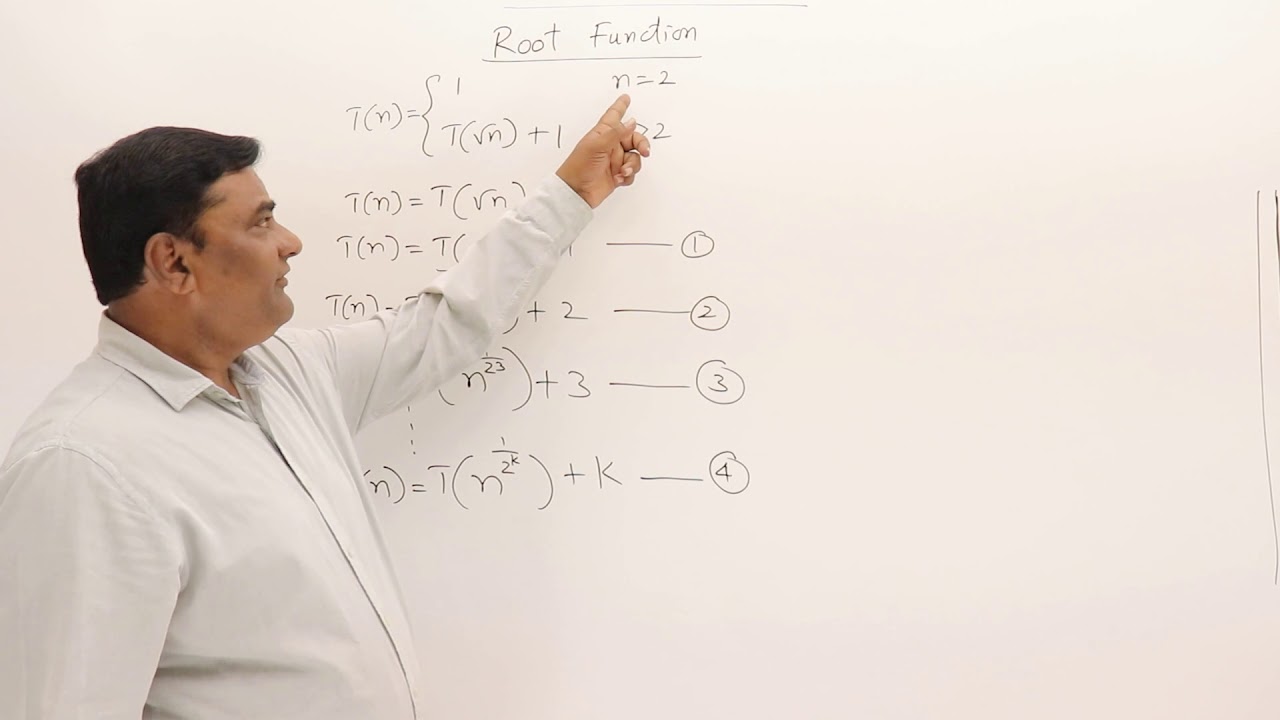 Root Function
T(n)= { 1 n=2
T(√n) + 1 >2
T(n) = T(√n)
T(n) = T( 1 —— ①
T(n) = ) + 2 —— ②
(n^{1/2^3}) + 3 —— ③
(n) = T(n^{1/2^k}) + K —— ④